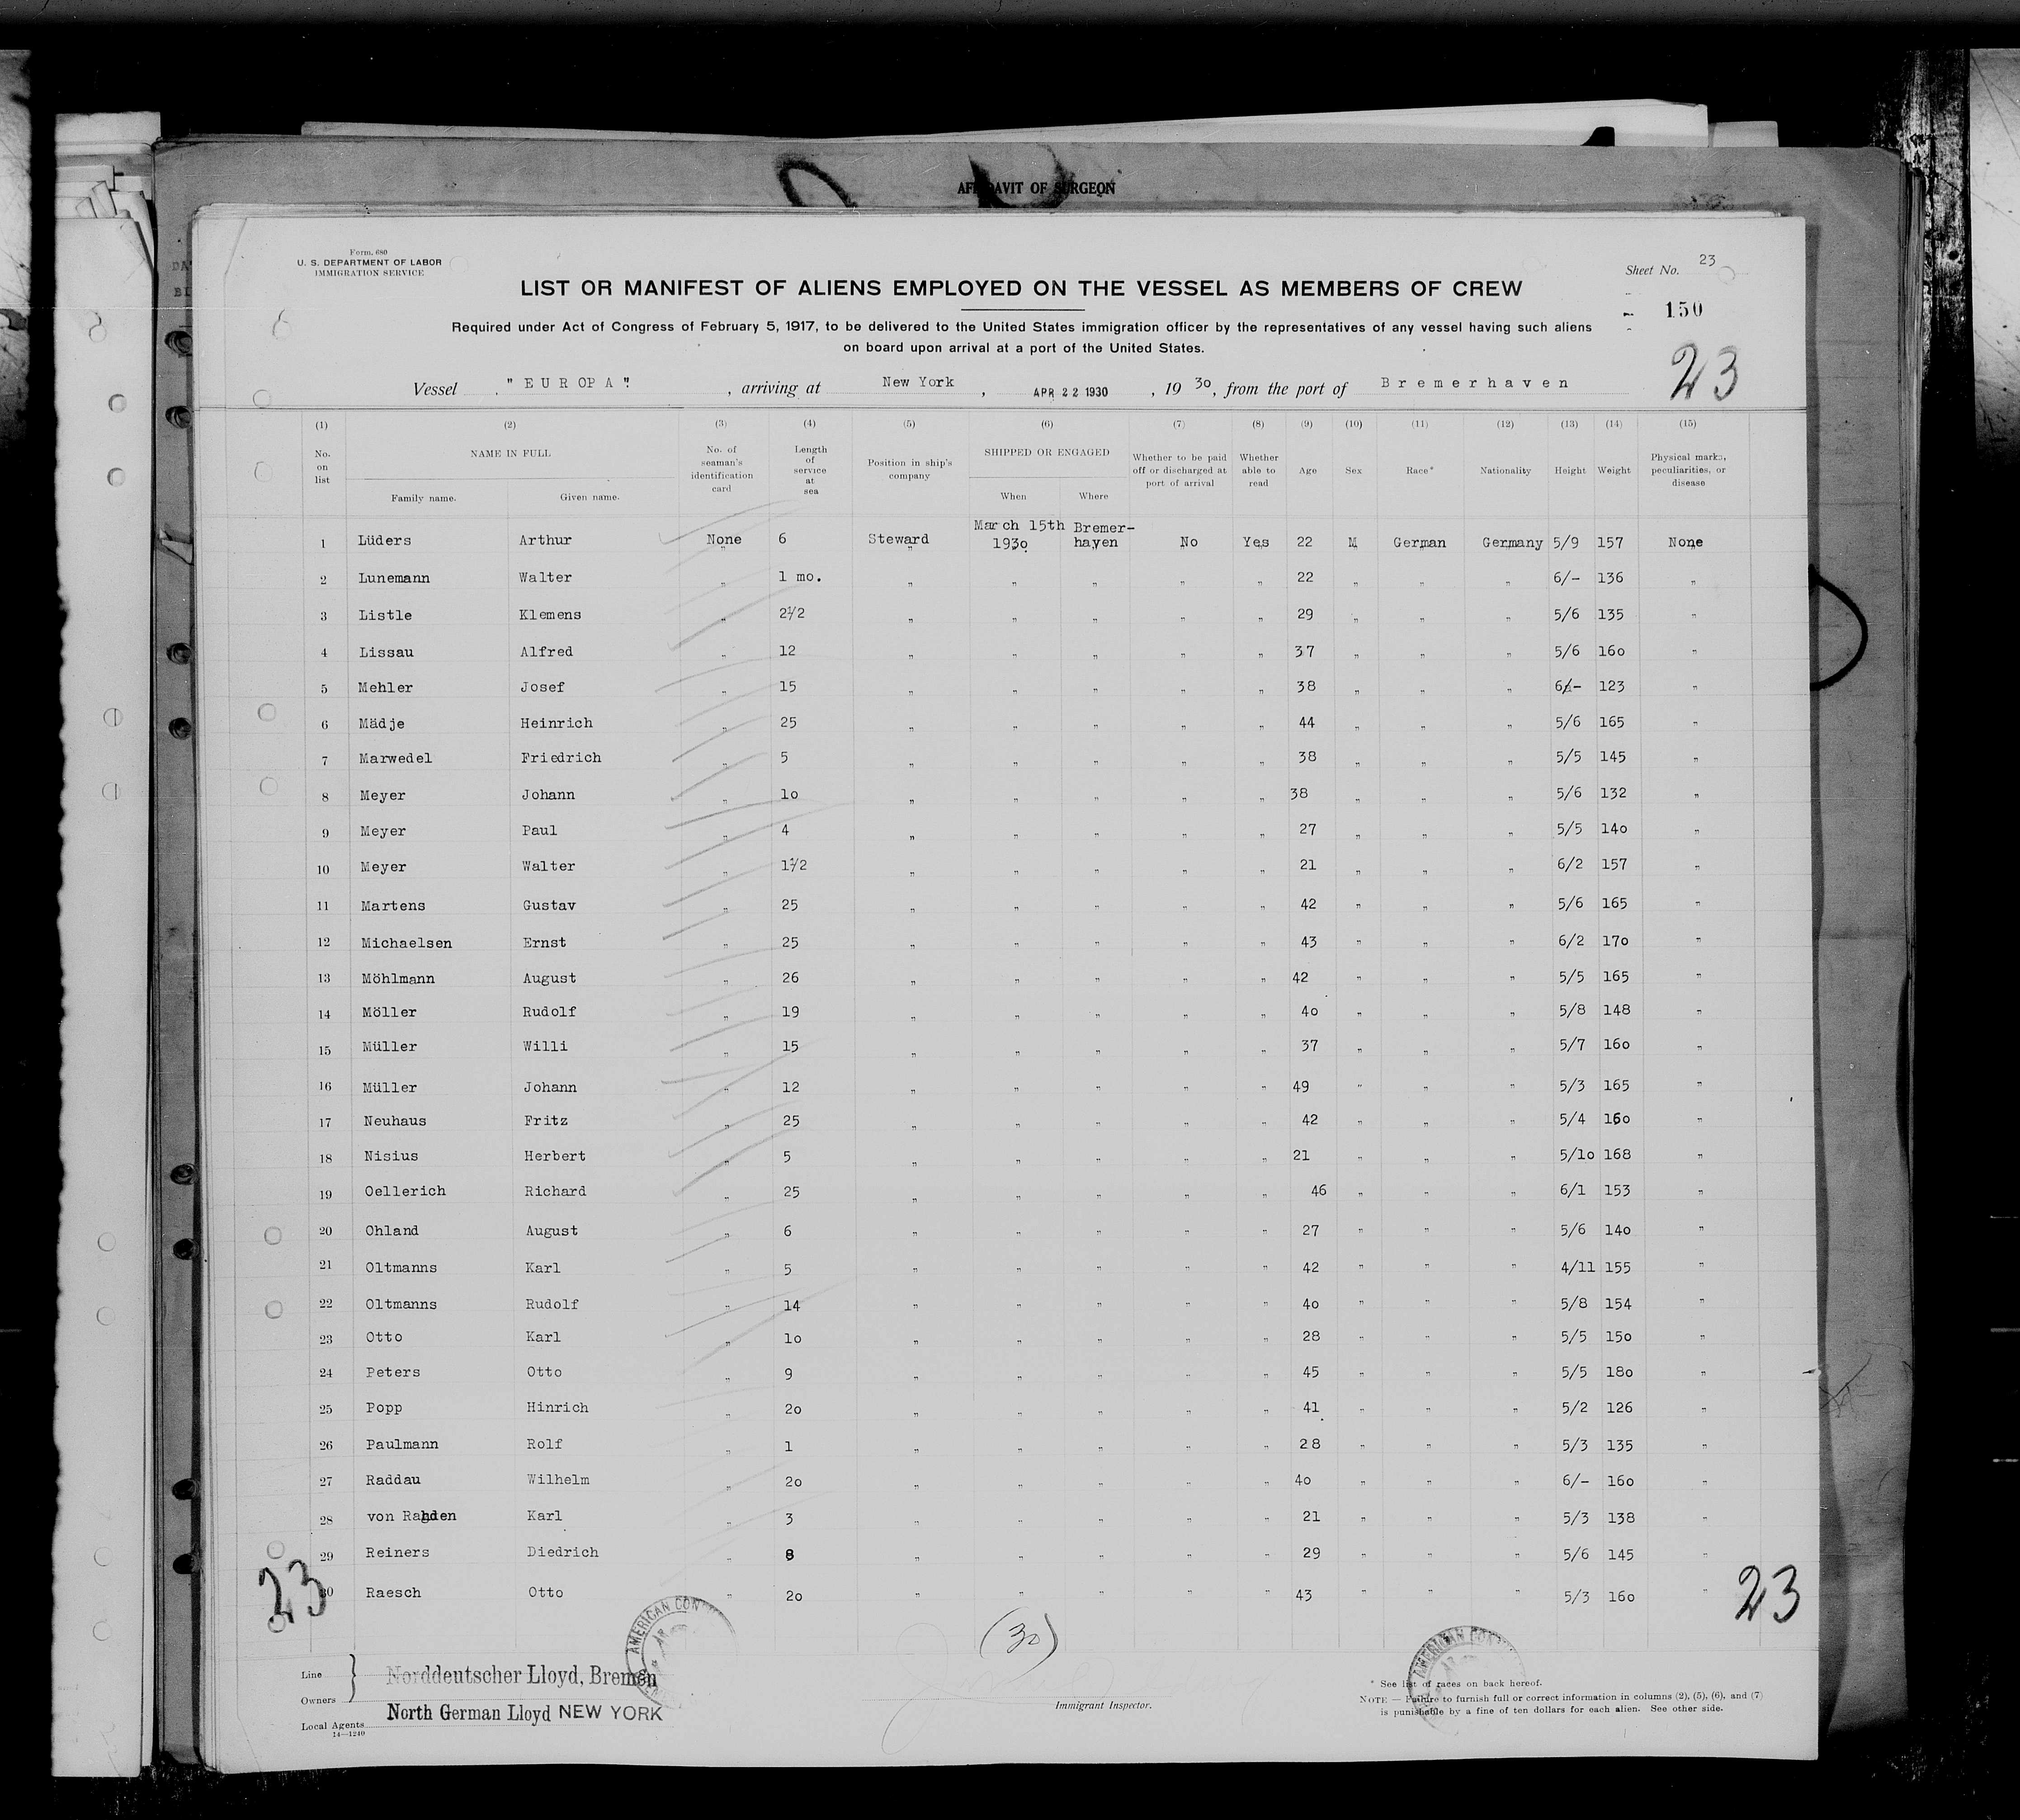 AFFIDAVIT OF SURGEON
Form. 680
U. S. DEPARTMENT OF LABOR
IMMIGRATION SERVICE
Sheet No. 23
LIST OR MANIFEST OF ALIENS EMPLOYED ON THE VESSEL AS MEMBERS OF CREW
150
Required under Act of Congress of February 5, 1917, to be delivered to the United States immigration officer by the representatives of any vessel having such aliens
on board upon arrival at a port of the United States.
23
Vessel "EUROPA", arriving at New York, APR 22 1930, 19 30, from the port of Bremerhaven
(1) (2) (3) (4) (5) (6) (7) (8) (9) (10) (11) (12) (13) (14) (15)
No. on list NAME IN FULL Family name. Given name. No. of seaman's identification card Length of service at sea Position in ship's company SHIPPED OR ENGAGED When Where Whether to be paid off or discharged at port of arrival Whether able to read Age Sex Race* Nationality Height Weight Physical marks, peculiarities, or disease
1 Lüders Arthur None 6 Steward March 15th 1930 Bremerhaven No Yes 22 M German Germany 5/9 157 None
2 Lunemann Walter " 1 mo. " " " " " 22 " " " 6/- 136 "
3 Listle Klemens " 2½ " " " " " 29 " " " 5/6 135 "
4 Lissau Alfred " 12 " " " " " 37 " " " 5/6 160 "
5 Mehler Josef " 15 " " " " " 38 " " " 6/- 123 "
6 Mädje Heinrich " 25 " " " " " 44 " " " 5/6 165 "
7 Marwedel Friedrich " 5 " " " " " 38 " " " 5/5 145 "
8 Meyer Johann " 10 " " " " " 38 " " " 5/6 132 "
9 Meyer Paul " 4 " " " " " 27 " " " 5/5 140 "
10 Meyer Walter " 1½ " " " " " 21 " " " 6/2 157 "
11 Martens Gustav " 25 " " " " " 42 " " " 5/6 165 "
12 Michaelsen Ernst " 25 " " " " " 43 " " " 6/2 170 "
13 Möhlmann August " 26 " " " " " 42 " " " 5/5 165 "
14 Möller Rudolf " 19 " " " " " 40 " " " 5/8 148 "
15 Müller Willi " 15 " " " " " 37 " " " 5/7 160 "
16 Müller Johann " 12 " " " " " 49 " " " 5/3 165 "
17 Neuhaus Fritz " 25 " " " " " 42 " " " 5/4 160 "
18 Nisius Herbert " 5 " " " " " 21 " " " 5/10 168 "
19 Oellerich Richard " 25 " " " " " 46 " " " 6/1 153 "
20 Ohland August " 6 " " " " " 27 " " " 5/6 140 "
21 Oltmanns Karl " 5 " " " " " 42 " " " 4/11 155 "
22 Oltmanns Rudolf " 14 " " " " " 40 " " " 5/8 154 "
23 Otto Karl " 10 " " " " " 28 " " " 5/5 150 "
24 Peters Otto " 9 " " " " " 45 " " " 5/5 180 "
25 Popp Hinrich " 20 " " " " " 41 " " " 5/2 126 "
26 Paulmann Rolf " 1 " " " " " 28 " " " 5/3 135 "
27 Raddau Wilhelm " 20 " " " " " 40 " " " 6/- 160 "
28 von Rahden Karl " 3 " " " " " 21 " " " 5/3 138 "
29 Reiners Diedrich " 8 " " " " " 29 " " " 5/6 145 "
30 Raesch Otto " 20 " " " " " 43 " " " 5/3 160 "
23
23
(30)
AMERICAN
AMERICAN
Line Norddeutscher Lloyd, Bremen
Owners
Local Agents North German Lloyd NEW YORK
14—1240
Immigrant Inspector.
* See list of races on back hereof.
NOTE — Failure to furnish full or correct information in columns (2), (5), (6), and (7)
is punishable by a fine of ten dollars for each alien. See other side.